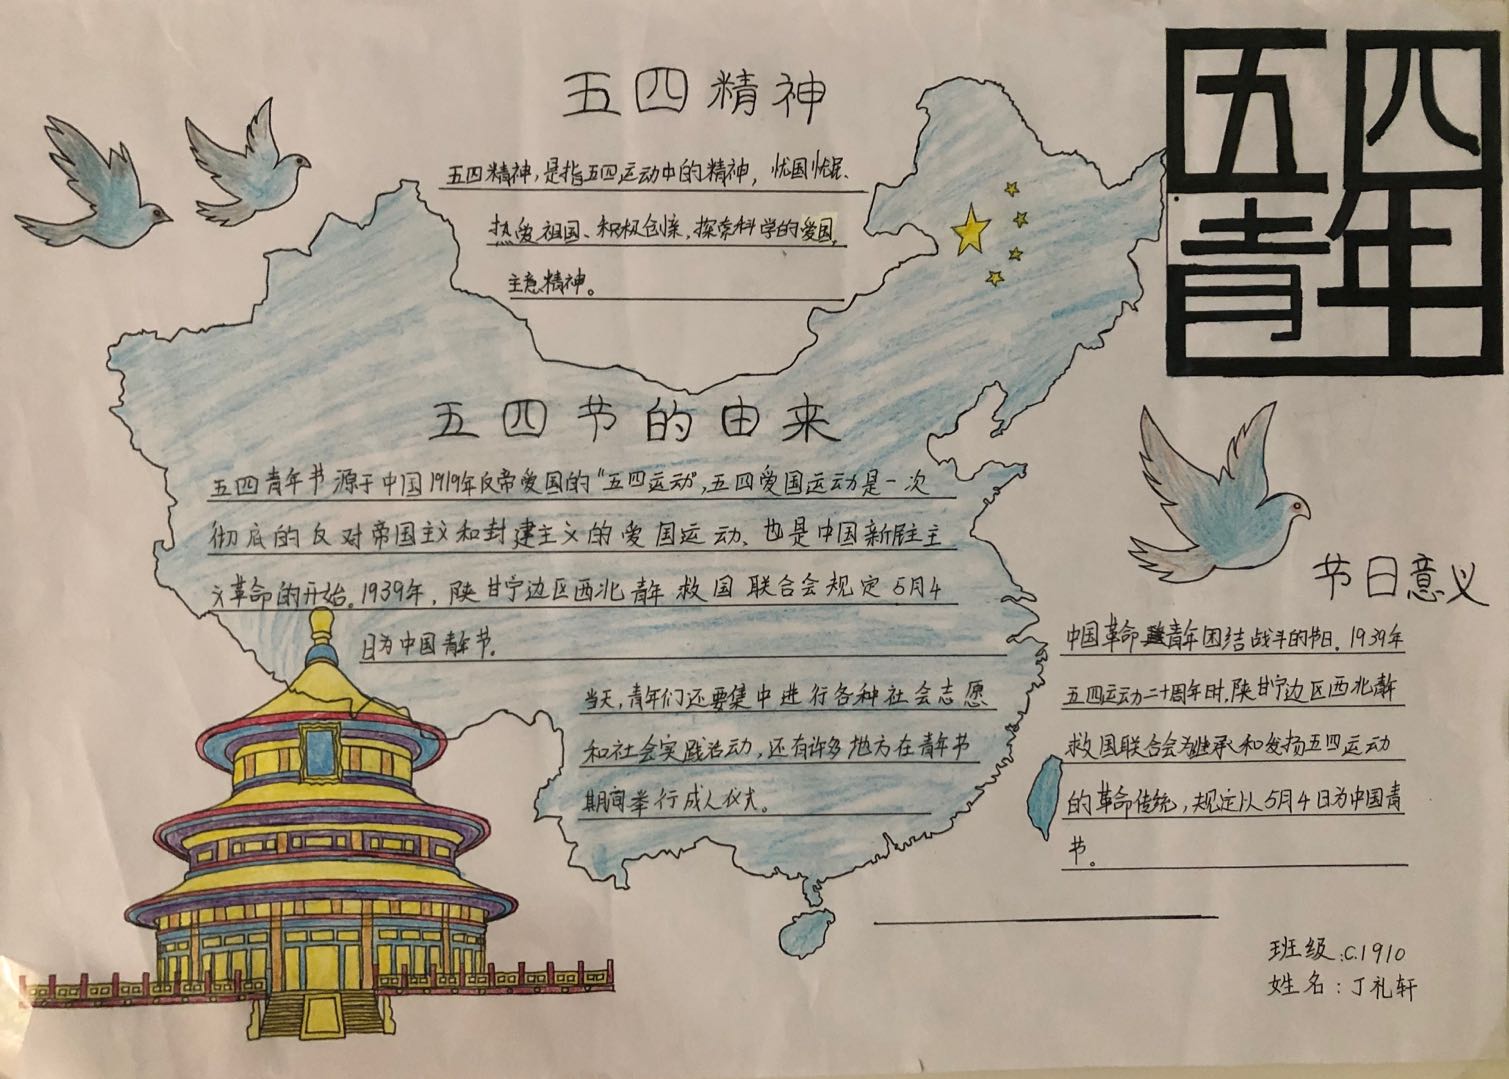 五四精神
五四精神，是指五四运动中的精神，忧国忧民、
热爱祖国、积极创新、探索科学的爱国
主意精神。
五四
青年
五四节的由来
五四青年节源于中国1919年反帝爱国的“五四运动”，五四爱国运动是一次
彻底的反对帝国主义和封建主义的爱国运动、也是中国新民主主
义革命的开始。1939年，陕甘宁边区西北青年救国联合会规定5月4
日为中国青年节。
当天，青年们还要集中进行各种社会志愿
和社会实践活动，还有许多地方在青年节
期间举行成人仪式。
节日意义
中国革命青年团结战斗的节日。1939年
五四运动二十周年时，陕甘宁边区西北青年
救国联合会为继承和发扬五四运动
的革命传统，规定以5月4日为中国青
节。
班级：C1910
姓名：丁礼轩